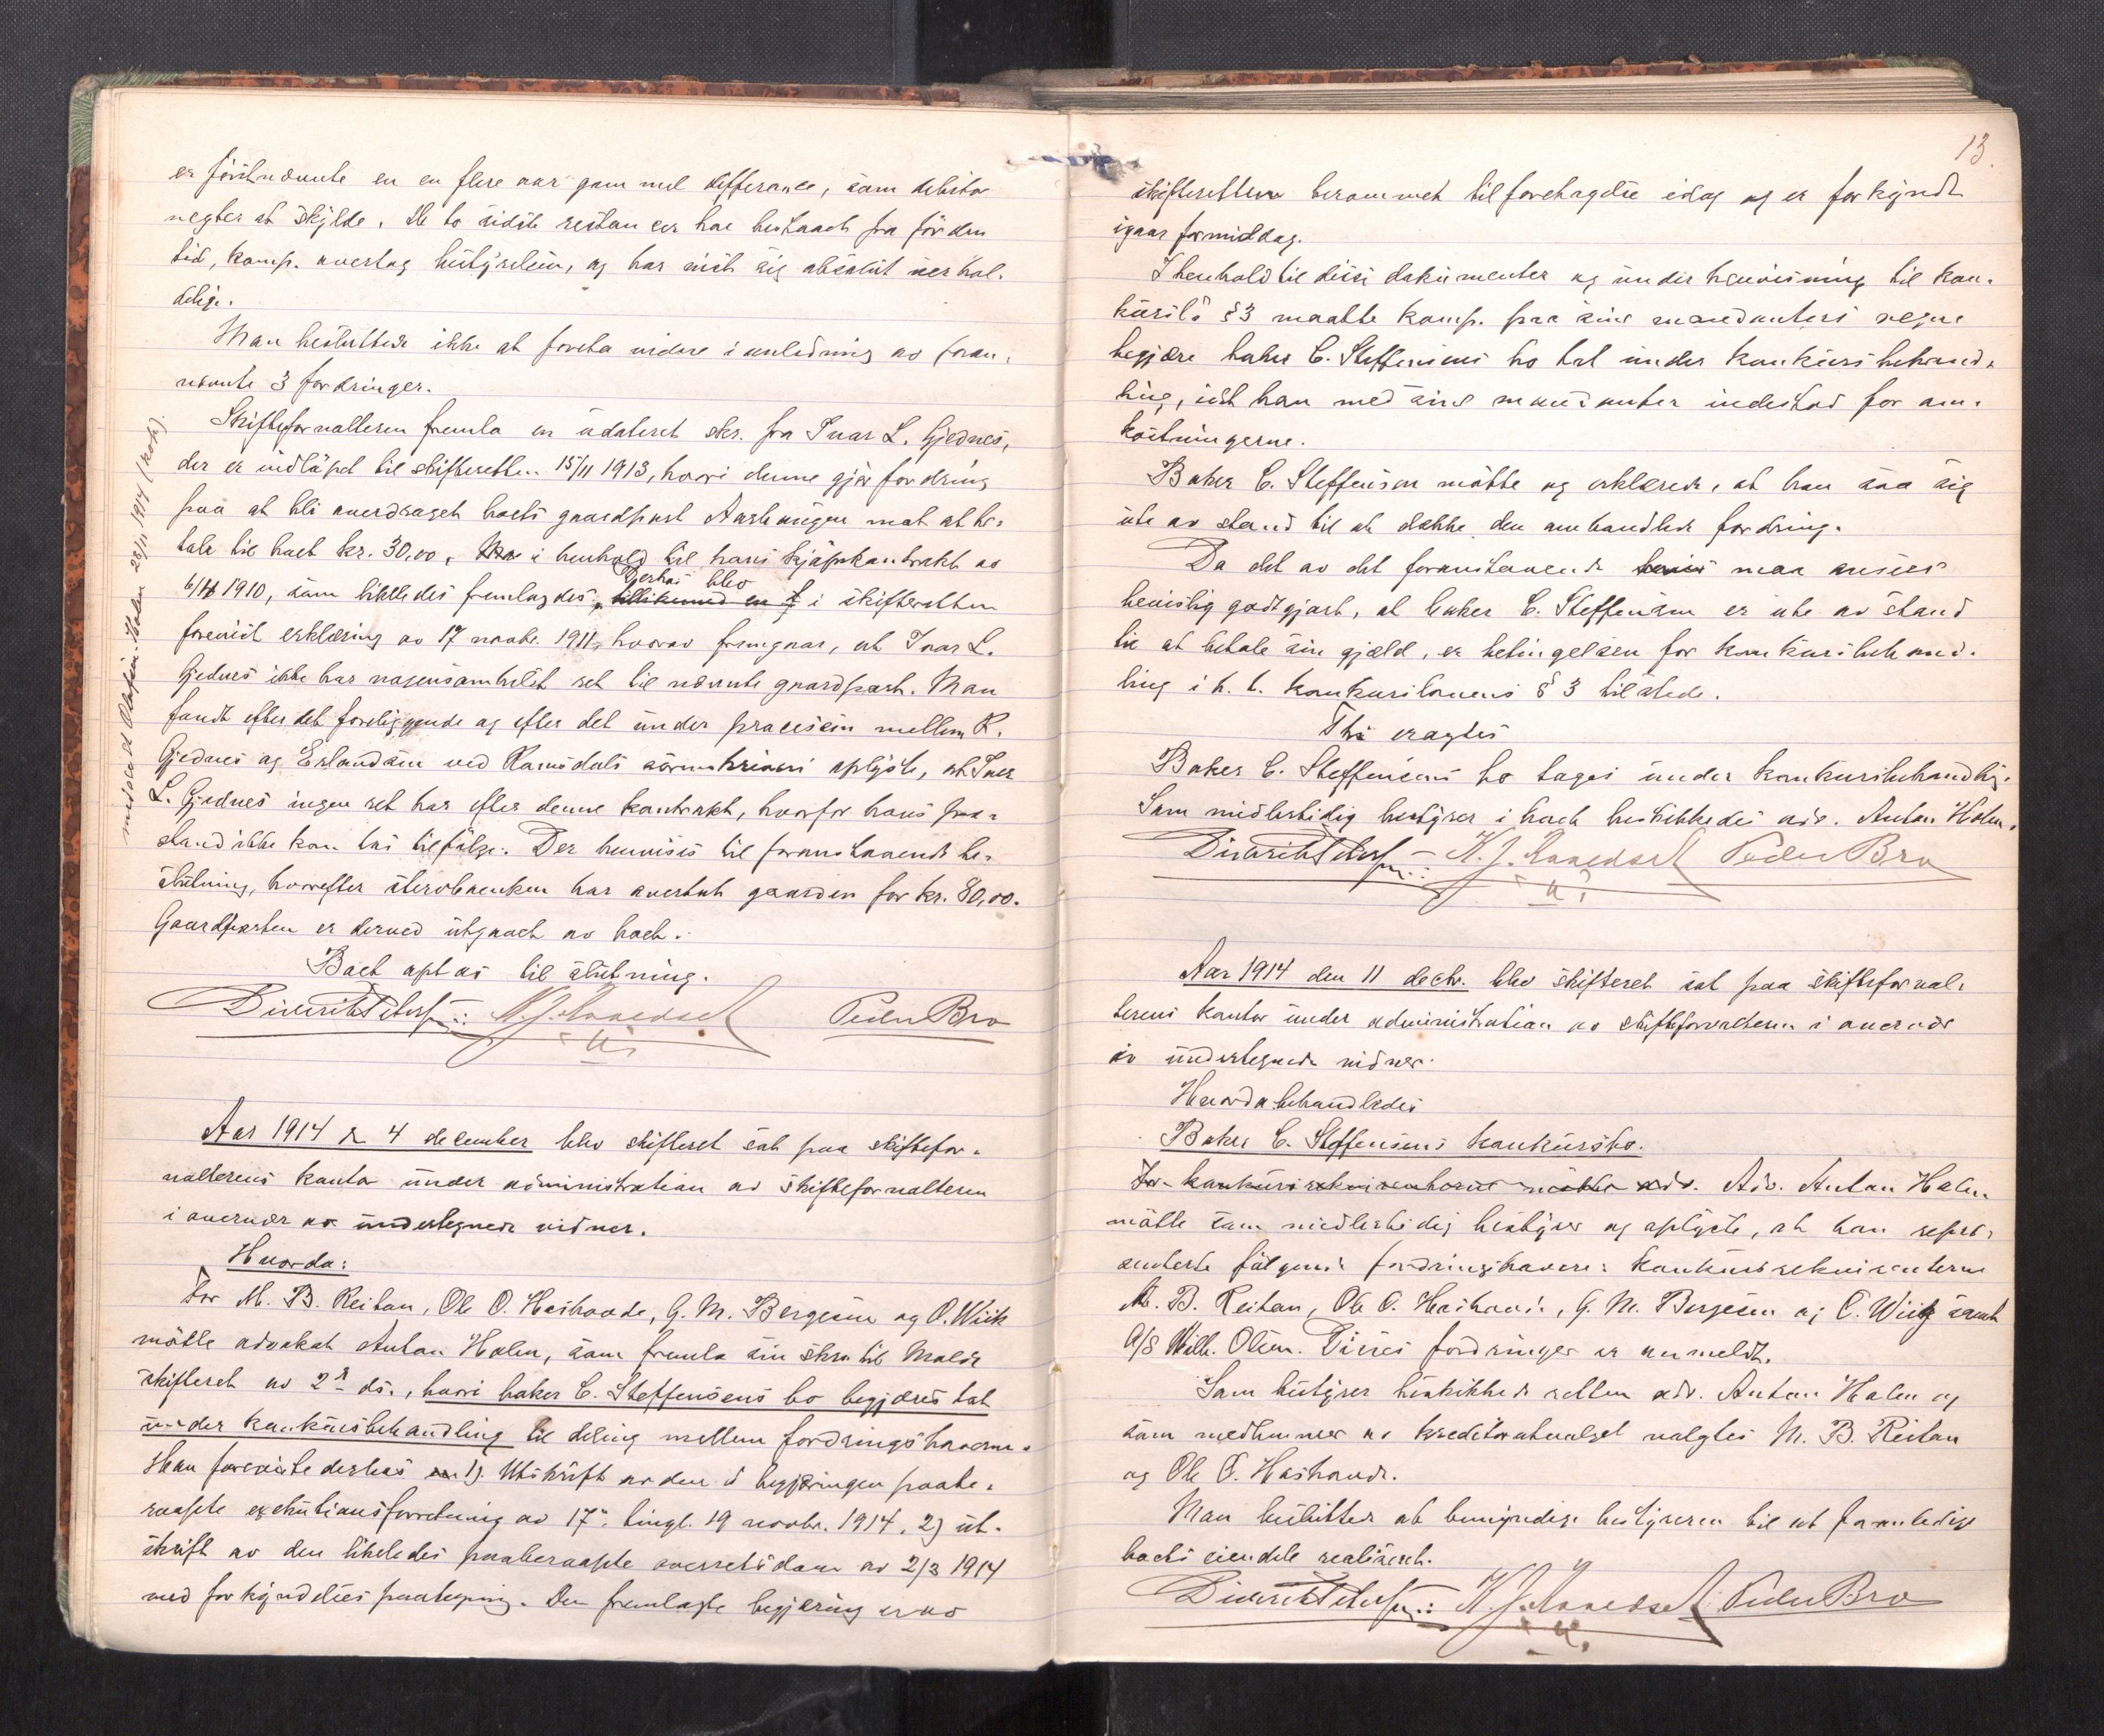 er förstnævnte en en flere aar gammel differance, som debitor
negter at skylde. De to sidste restancer har bestaaet fra för den
tid, komp. overtog bestyrelsen, og har vist sig absolut uerhol-
delige.
Man besluttede ikke at foreta videre i anledning av foran-
nævnte 3 fordringer.
Skifteforvalteren fremla en udateret skr. fra Ivar L. Gjednes,
der er indløpet til skifteretten 15/11 1913, hvori denne gjør fordring
paa at bli overdraget boets gaardpart Aashaugen mot at be-
tale til boet kr. 30,00, i henhold til hans kjøpekontrakt av
6/11 1910, som likeledes fremlagdes. Derhos blev i skifteretten
forevist erklæring av 17 novbr. 1911, hvorav fremgaar, at Ivar L.
Gjednes ikke har nogensomhelst ret til nævnte gaardpart. Man
fandt efter det foreliggende og efter det under processen mellem R.
Gjednes og Erlandsen ved Romsdals sorenskriveri oplyste, at Ivar
L. Gjednes ingen ret har efter denne kontrakt, hvorfor hans paa-
stand ikke kan tas tilfølge. Der henvises til foranstaaende be-
slutning, hvorefter Örskogbanken har overtat gaarden for kr. 80,00.
Gaardparten er derved utgaaet av boet.
Boet optas til slutning.
K. J. Aaredsel Peder Bro
Aar 1914 d 4 december blev skifteret sat paa skiftefor-
valterens kontor under administration av skifteforvalteren
i overvær av undertegnede vidner.
Hvorda:
For M. B. Reitan, Ole O. Hoshovde, G. M. Bergesen og O. Wiik
mötte advokat Anton Holen, som fremla sin skr. til Molde
skifteret av 2d ds., hvori baker C. Steffensens bo begjæres tat
under konkursbehandling til deling mellem fordringshaverne.
Han foreviste derhos 1). Utskrift av den i begjæringen paabe-
raapte exekutionsforretning av 17., tingl. 19 novbr. 1914, 2) ut-
skrift av den likeledes paaberaapte overretsdom av 2/3 1914
med forkyndelsespaategning. Den fremlagte begjæring er av
13.
skifteretten berammet til foretagelse idag og er forkyndt
igaar formiddag.
I henhold til disse dokumenter og under henvisning til kon-
kursl's § 3 maatte komp. paa sine mandanters vegne
begjære baker C. Steffensens bo tat under konkursbehand-
ling, idet han med sine mandanter indestod for om-
kostningerne.
Baker C. Steffensen mötte og erklærede, at han saa sig
ute av stand til at dække den omhandlede fordring.
Da det av det foranstaaende maa ansees
bevislig godtgjort, at baker C. Steffensen er ute av stand
til at betale sin gjæld, er betingelsen for konkursbehand-
ling i h. t. konkurslovens § 3 tilstede.
Thi eragtes
Baker C. Steffensens bo tages under konkursbehandling.
Som midlertidig bestyrer i boet beskikkedes adv. Anton Holen.
K. J. Aaredsel Peder Bro
Aar 1914 den 11 decbr. blev skifteret sat paa skifteforval-
terens kontor under administration av skifteforvalteren i overvær
av undertegnede vidner.
Hvorda behandledes
Baker C. Steffensens konkursbo.
For konkursrekvirenterne mötte adv. Adv. Anton Holen
mötte som midlertidig bestyrer og oplyste, at han repræ-
senterte følgende fordringshavere: Konkursrekvirenterne
M. B. Reitan, Ole O. Hoshovde, G. M. Bergesen og O. Wiig samt
A/S Wilh. Olsen. Disses fordringer er anmeldt.
Som bestyrer beskikkede retten adv. Anton Holen og
som medlemmer av kreditorutvalget valgtes M. B. Reitan
og Ole O. Hoshovde.
Man besluttet at bemyndige bestyreren til at foranledige
boets eiendele realiseret.
K. J. Aaredsel Peder Bro